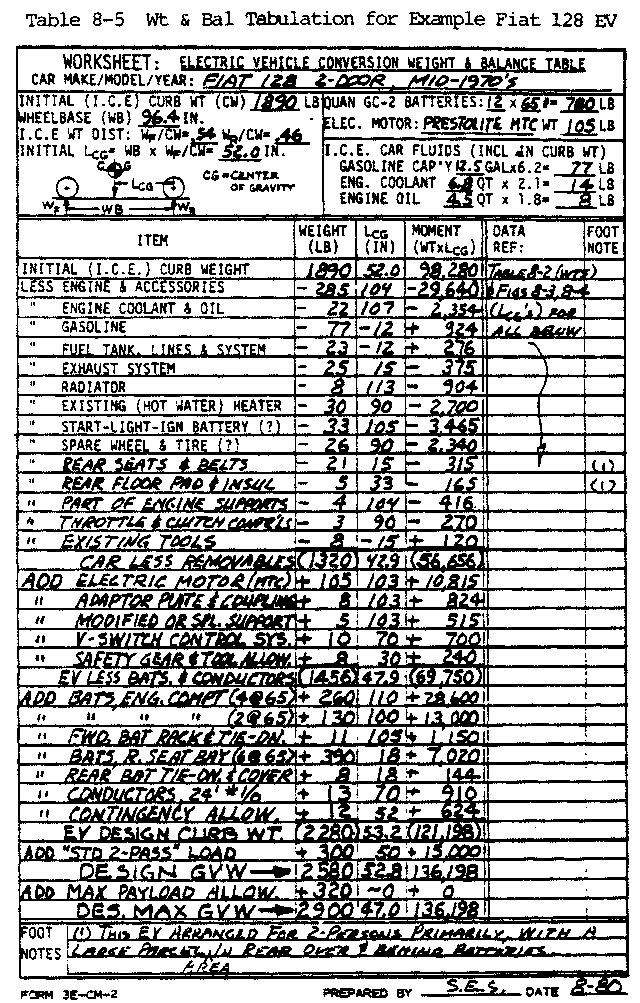 Table 8-5 Wt & Bal Tabulation for Example Fiat 128 EV
WORKSHEET: ELECTRIC VEHICLE CONVERSION WEIGHT & BALANCE TABLE
CAR MAKE/MODEL/YEAR: FIAT 128 2-DOOR, MID-1970'S
INITIAL (I.C.E) CURB WT (CW) 1890 LB QUAN GC-2 BATTERIES: 12 x 65#= 780 LB
WHEELBASE (WB) 96.4 IN. ELEC. MOTOR: PRESTOLITE MTC WT 105 LB
I.C.E WT DIST: WF/CW= .54 WR/CW= .46
INITIAL LCG= WB x WF/CW= 52.0 IN. I.C.E. CAR FLUIDS (INCL IN CURB WT)
GASOLINE CAP'Y 12.5 GALx6.2= 77 LB
ENG. COOLANT 6.8 QT x 2.1= 14 LB
ENGINE OIL 4.5 QT x 1.8= 8 LB
CG CG=CENTER OF GRAVITY
LCG
WF WB WR
ITEM WEIGHT (LB) LCG (IN) MOMENT (WTxLCG) DATA REF: FOOT NOTE
INITIAL (I.C.E.) CURB WEIGHT 1890 52.0 98,280 TABLE 8-2 (WTS)
LESS ENGINE & ACCESSORIES - 285 104 -29,640 & FIGS 8-3, 8-4
" ENGINE COOLANT & OIL - 22 107 - 2,354 (LCG'S) FOR
" GASOLINE - 77 -12 + 924 ALL BELOW
" FUEL TANK, LINES & SYSTEM - 23 -12 + 276
" EXHAUST SYSTEM - 25 15 - 375
" RADIATOR - 8 113 - 904
" EXISTING (HOT WATER) HEATER - 30 90 - 2,700
" START-LIGHT-IGN BATTERY (?) - 33 105 - 3,465
" SPARE WHEEL & TIRE (?) - 26 90 - 2,340
" REAR SEATS & BELTS - 21 15 - 315 (1)
" REAR FLOOR PAD & INSUL - 5 33 - 165 (1)
" PART OF ENGINE SUPPORTS - 4 104 - 416
" THROTTLE & CLUTCH COMPR'LS - 3 90 - 270
" EXISTING TOOLS - 8 -15 + 120
CAR LESS REMOVABLES (1320) 42.9 (56,656)
ADD ELECTRIC MOTOR (MTC) + 105 103 + 10,815
" ADAPTOR PLATE & COUPLING + 8 103 + 824
" MODIFIED OR SPL. SUPPORT + 5 103 + 515
" V-SWITCH CONTROL SYS. + 10 70 + 700
" SAFETY GEAR & TOOL ALLOW. + 8 30 + 240
EV LESS BATS. & CONDUCTORS (1456) 47.9 (69,750)
ADD BATS, ENG. COMPT (4@65) + 260 110 + 28,600
" " " " (2@65) + 130 100 + 13,000
" FWD. BAT RACK & TIE-DN. + 11 105 + 1,150
" BATS, R. SEAT BAY (6@65) + 390 18 + 7,020
" REAR BAT TIE-DN. & COVER + 8 18 + 144
" CONDUCTORS, 24' #1/0 + 13 70 + 910
" CONTINGENCY ALLOW. + 12 52 + 624
EV DESIGN CURB WT. (2280) 53.2 (121,198)
ADD "STD 2-PASS" LOAD + 300 50 + 15,000
DESIGN GVW → 2580 52.8 136,198
ADD MAX PAYLOAD ALLOW. + 320 ~0 + 0
DES. MAX GVW → 2900 47.0 136,198
FOOT NOTES (1) THIS EV ARRANGED FOR 2-PERSONS PRIMARILY, WITH A
LARGE PARCEL IN REAR OVER & BEHIND BATTERIES
AREA
FORM 3E-CM-2 PREPARED BY S.E.S. DATE 8-80